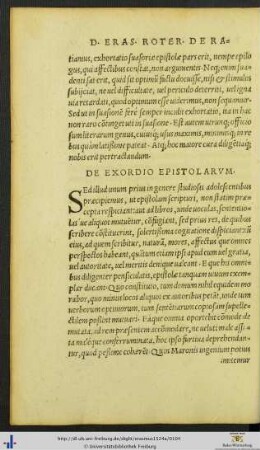 D. ERAS. ROTER. DE RA-
tianus, exhortatio suasoriæ epistolæ pars erit, nempe epilo
gus, qui affectibus constat, non argumentis. Neq; enim sua
denti sat erit, quid sit optimū factu docuisse, nisi & stimulos
subijciat, ne uel difficultate, uel periculo deterriti, uel segni
tia retardati, quod optimum esse uiderimus, non sequamur.
Sed ut in suasione ferè semper incubit exhortatio, ita
non raro cōtingat citra suasione. Est autem unum, officio
sum literarum genus, cuius usus maximus,
bus quàm latissime patet. Atq; hoc maiore cura diligētiaq;
nobis erit pertractandum.
DE EXORDIO EPISTOLARVM.
Sed illud unum prius in genere studiosis adolescentibus
præcipiemus, ut epistolam scripturi, non statim præ-
cepta respiciant aut ad libros, unde uoculas, sententio-
las aliquot mutuētur, cōfugiant, sed prius rei, de qua
scribere cōstituerint, solertissima cogitatione dispiciant: nū
eius, ad quem scribitur, naturā, mores, affectus que omnes
perspectos habeant, quātum etiam ipsi apud eum uel gratia,
uel autoritate, uel meritis denique ualeant. E quibus omni-
bus diligenter pensiculatis, epistolæ tanquam uiuum exem-
plar ducant. Quo constituto, tum demum nihil equidem mo
rabor, quo minus locos aliquot ex autoribus petāt, unde tum
uerborum optimorum, tum sententiarum copiosam supelle-
ctilem possint mutuari. Eaque omnia oportebit cōmode
mutata, ad rem præsentem accommodare, ne uelut male affi-
cta
tur, quod pessime cohæreat. Quo Maronis ingenium potius
imitemur
http://dl.ub.uni-freiburg.de/diglit/erasmus1524a/0106
© Universitätsbibliothek Freiburg
Baden-Württemberg